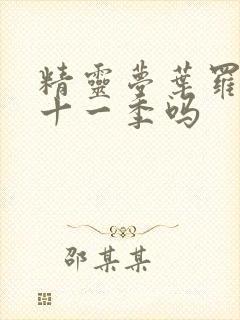 精靈夢葉羅
十一季嗎
邵某某